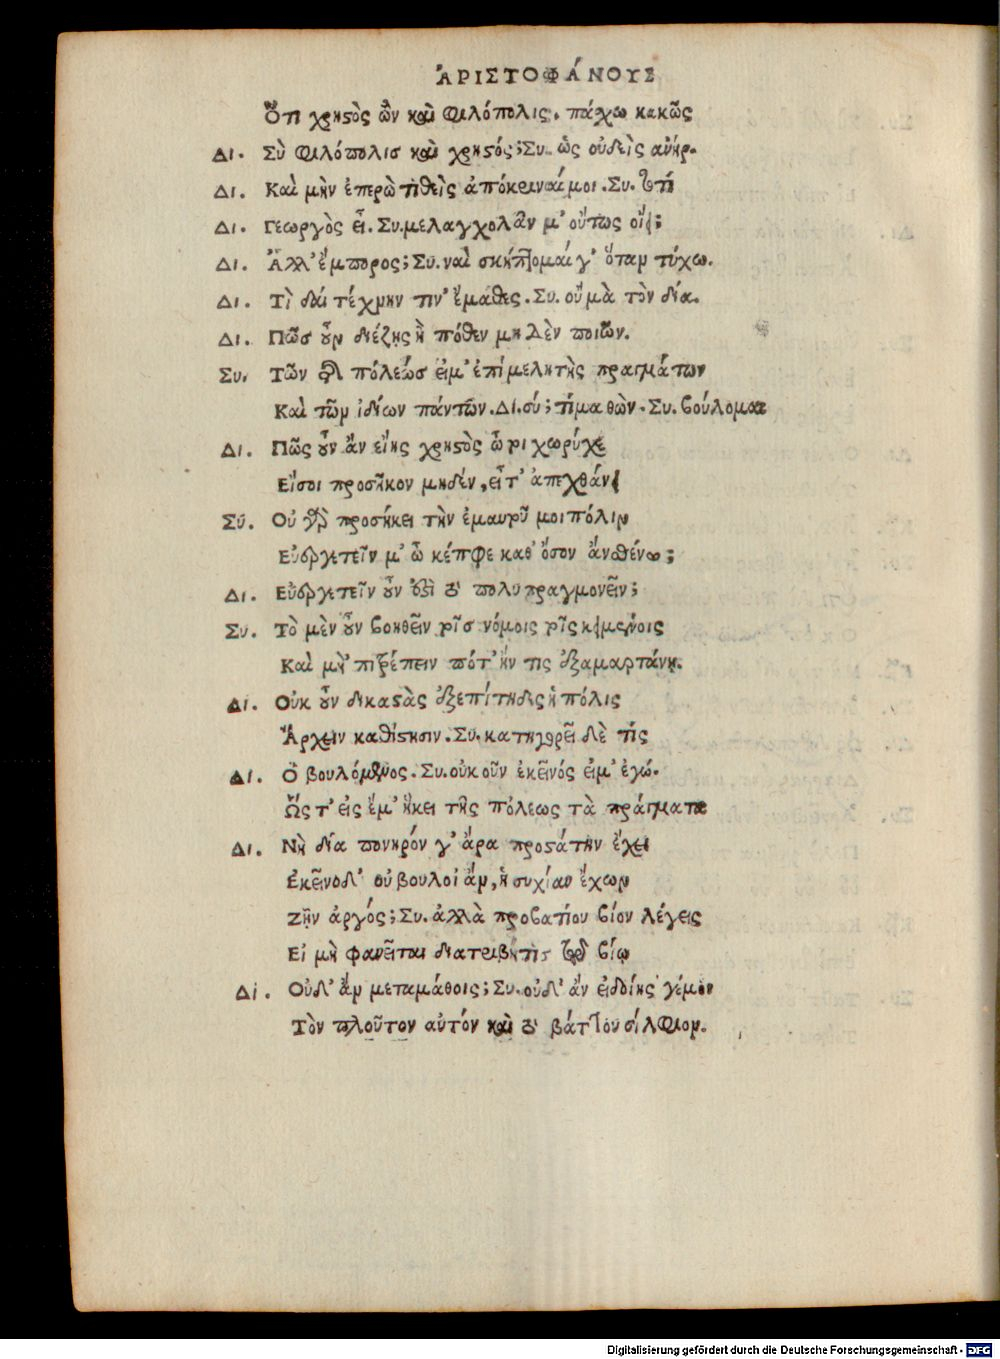 ἈΡΙΣΤΟΦΆΝΟΥΣ
Ὅτι χρηστὸς ὢν καὶ φιλόπολις, πάσχω κακῶς
Δι. Σὺ φιλόπολισ καὶ χρηστός; Συ. ὡς οὐδεὶς ἀνήρ.
Δι. Καὶ μὴν ἐπερωτηθεὶς ἀπόκριναί μοι. Συ. τὸ τί
Δι. Γεωργὸς εἶ. Συ. μελαγχολᾶν μ' οὕτως οἴει;
Δι. Ἀλλ' ἔμπορος; Συ. ναὶ σκήπτομαί γ' ὅταν τύχω.
Δι. Τὶ δαὶ τέχνην τιν' ἔμαθες. Συ. οὐ μὰ τὸν δία.
Δι. Πῶσ οὖν διέζης ἢ πόθεν μηδὲν ποιῶν.
Συ. Τῶν τῆς πόλεώσ εἰμ' ἐπιμελητὴς πραγμάτων
Καὶ τῶν ἰδίων πάντων. Δι. σύ; τί μαθὼν. Συ. βούλομαι
Δι. Πῶς οὖν ἂν εἴης χρηστὸς ὦ τοιχωρύχε
Εἴσοι προσῆκον μηδέν, εἶτ' ἀπεχθάνει
Συ. Οὐ γὰρ προσήκει τὴν ἐμαυτοῦ μοι πόλιν
Εὐεργετεῖν μ' ὦ κέπφε καθ' ὅσον ἂν σθένω;
Δι. Εὐεργετεῖν οὖν ἐστὶ τὸ πολυπραγμονεῖν;
Συ. Τὸ μὲν οὖν βοηθεῖν τοῖσ νόμοις τοῖς κειμένοις
Καὶ μὴ 'πιτρέπειν πότ' ἤν τις ἐξαμαρτάνῃ.
Δι. Οὐκ οὖν δικαστὰς ἐξεπίτηδες ἡ πόλις
Ἄρχειν καθίστησιν. Συ. κατηγορεῖ δὲ τίς
Δι. Ὁ βουλόμενος. Συ. οὐκοῦν ἐκεῖνός εἰμ' ἐγώ.
Ὥς τ' εἰς ἔμ' ἥκει τῆς πόλεως τὰ πράγματα
Δι. Νὴ δία πονηρόν γ' ἄρα προστάτην ἔχει
Ἐκεῖνο δ' οὐ βουλοί ἂν, ἡσυχίαν ἔχων
Ζῆν ἀργός; Συ. ἀλλὰ προβατίου βίον λέγεις
Εἰ μὴ φανεῖται διατριβή τὶς τῷ βίῳ
Δι. Οὐδ' ἂν μεταμάθοις; Συ. οὐδ' ἂν εἰ δοίης γέ μοι
Τὸν πλοῦτον αὐτόν καὶ τὸ βάττου σίλφιον.
Digitalisierung gefördert durch die Deutsche Forschungsgemeinschaft - DFG